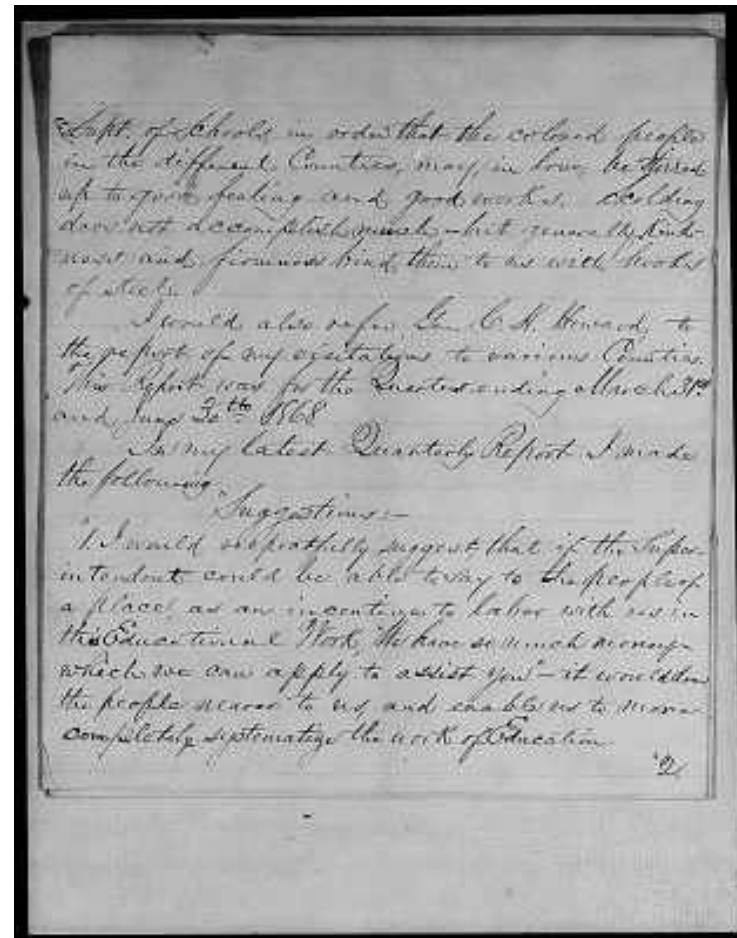 Supt. of Schools, in order that the colored people
in the different Counties, may, in love, be stirred
up to good feeling and good works. Scolding
does not accomplish much – but generally, kind-
ness and firmness bind them to us with hooks
of steel.
I would also refer Gen. C. H. Howard, to
the report of my visitations to various Counties.
This Report was for the Quarters ending March 31st
and June 30th 1868
In my latest Quarterly Report I made
the following
"Suggestions:–
"1. I would respectfully suggest that if the Super-
intendent could be able to say to the people of
a place, as an incentive to labor with us in
this Educational Work, 'We have so much money
which we can apply to assist you' – it would
the people nearer to us, and enable us to more
completely systematize the work of Education
"2